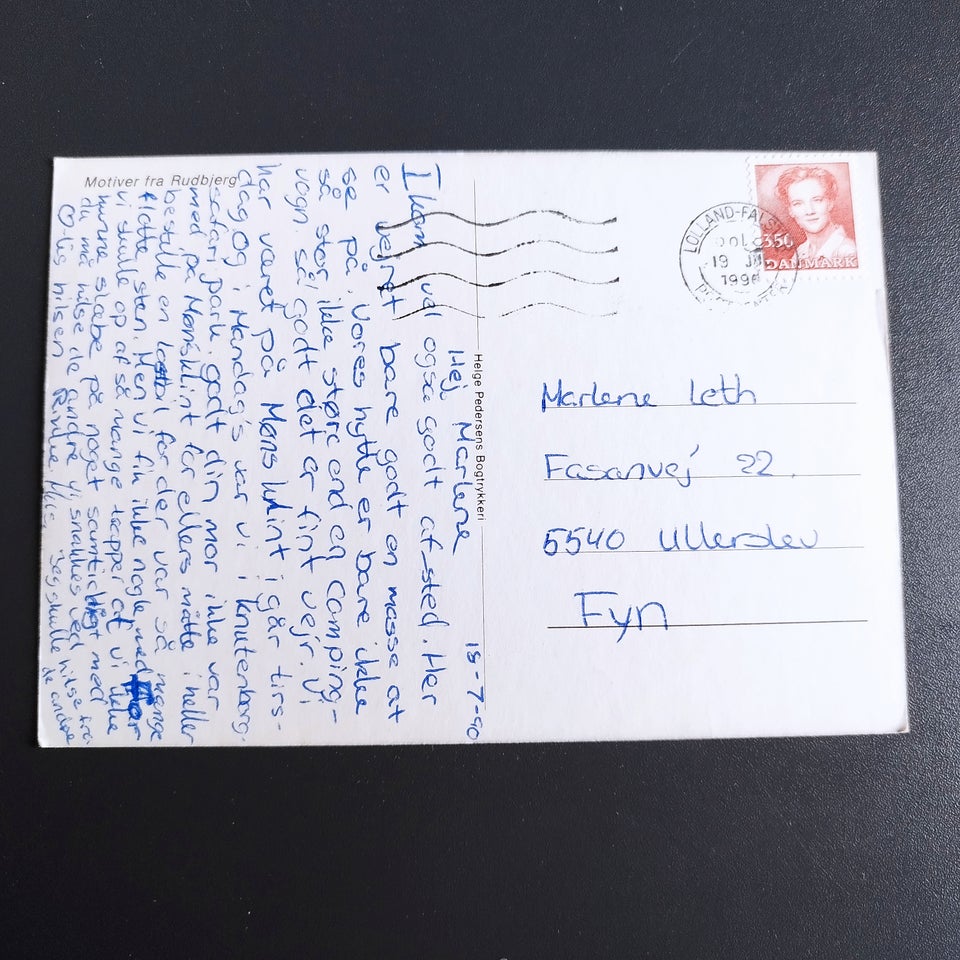 Motiver fra Rudbjerg
18-7-90
Hej Marlene
I kom vel også godt af-sted. Her
er vejret bare godt en masse at
se på. Vores hytte er bare ikke
så stor ikke støre end en camping-
vogn. så godt det er fint vejr. Vi
har været på Møns klint i går tirs-
dag og i Mandag's var vi i knutenborg.
safari park. godt din mor ikke var
med på Mønsklint for ellers måtte i heller
bestille en lastbil for der var så mange
flotte sten. Men vi fik ikke nogle med for
vi skulle op af så mange trapper at vi ikke
kunne slæbe på noget samtidigt med
du må hilse de andre vi snakkes ved
♡-lig hilsen Rikke
Jeg skulle hilse fra
de andre
Helge Pedersens Bogtrykkeri
LOLLAND-FALSTER
19
1990
350
DANMARK
Marlene Leth
Fasanvej 22.
5540 Ullerslev
Fyn